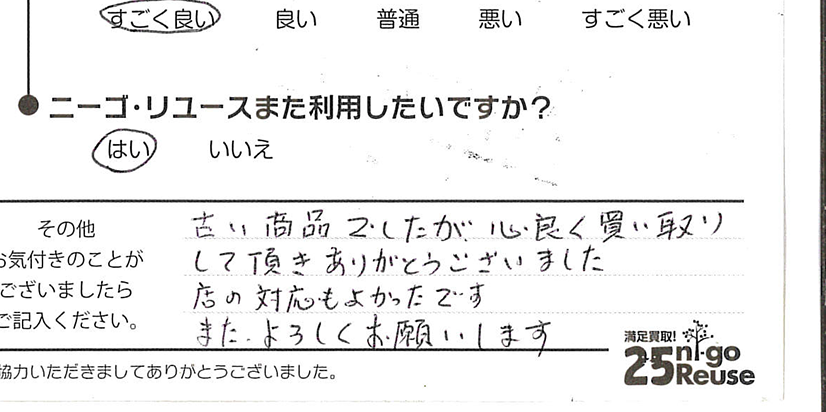 すごく良い 良い 普通 悪い すごく悪い
●ニーゴ・リユースまた利用したいですか？
はい いいえ
その他
お気付きのことが
ございましたら
ご記入ください。
古い商品でしたが、心良く買い取り
して頂きありがとうございました
店の対応もよかったです
また、よろしくお願いします
満足買取!
25 ni-go
Reuse
協力いただきましてありがとうございました。